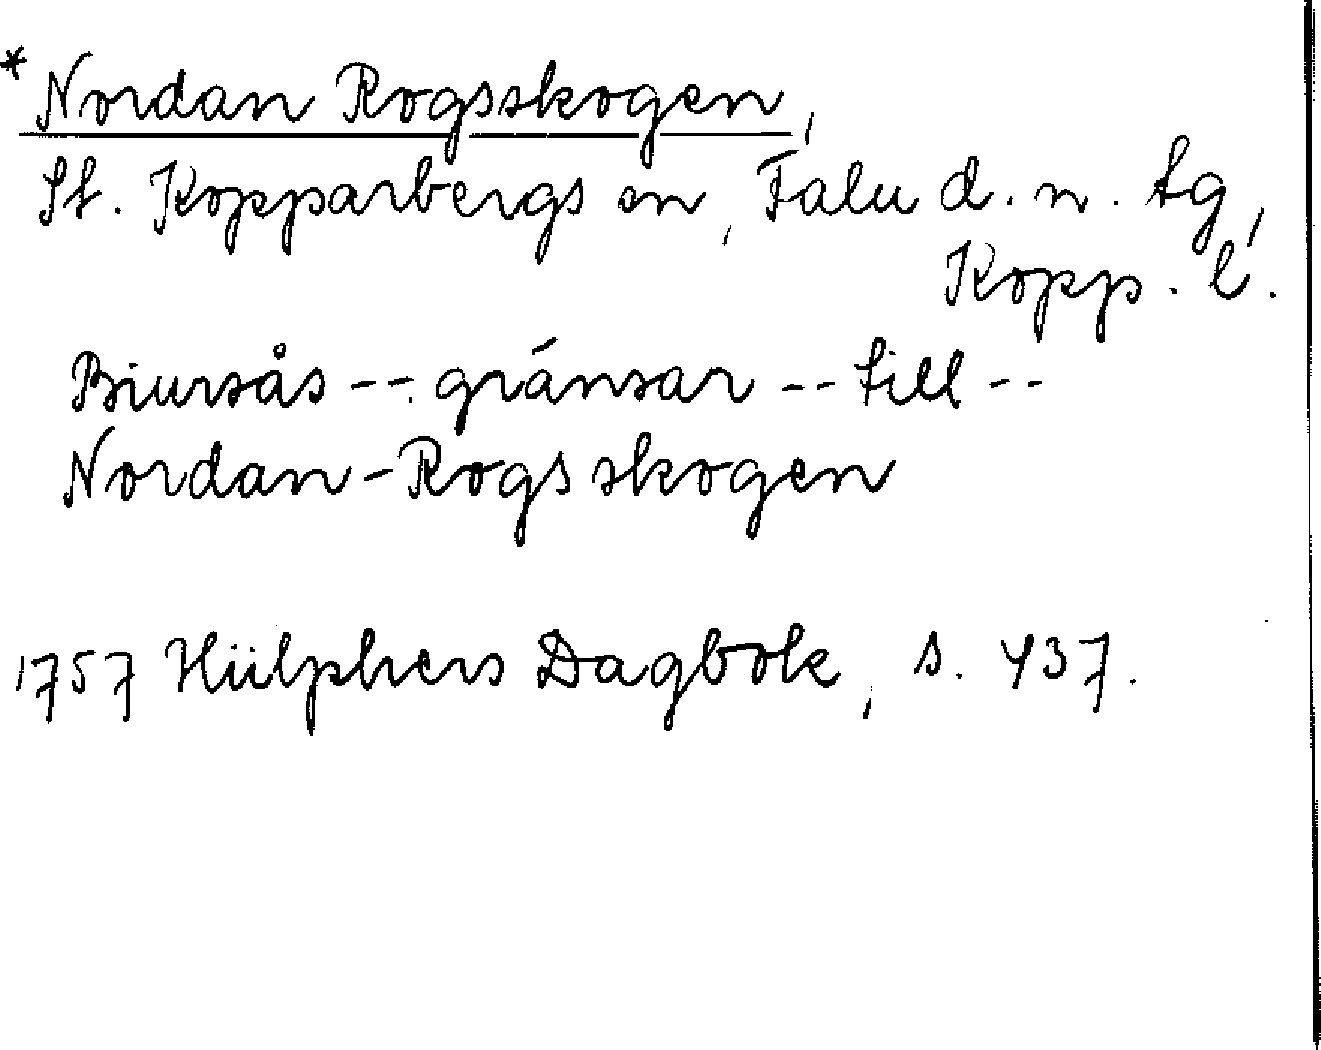 *Nordan Rogsskogen,
St. Kopparbergs sn, Falu d. n. tg,
Kopp. l.
Biursås --. gränsar -- till --
Nordan-Rogs skogen
1757 Hülphers Dagbok, s. 437.